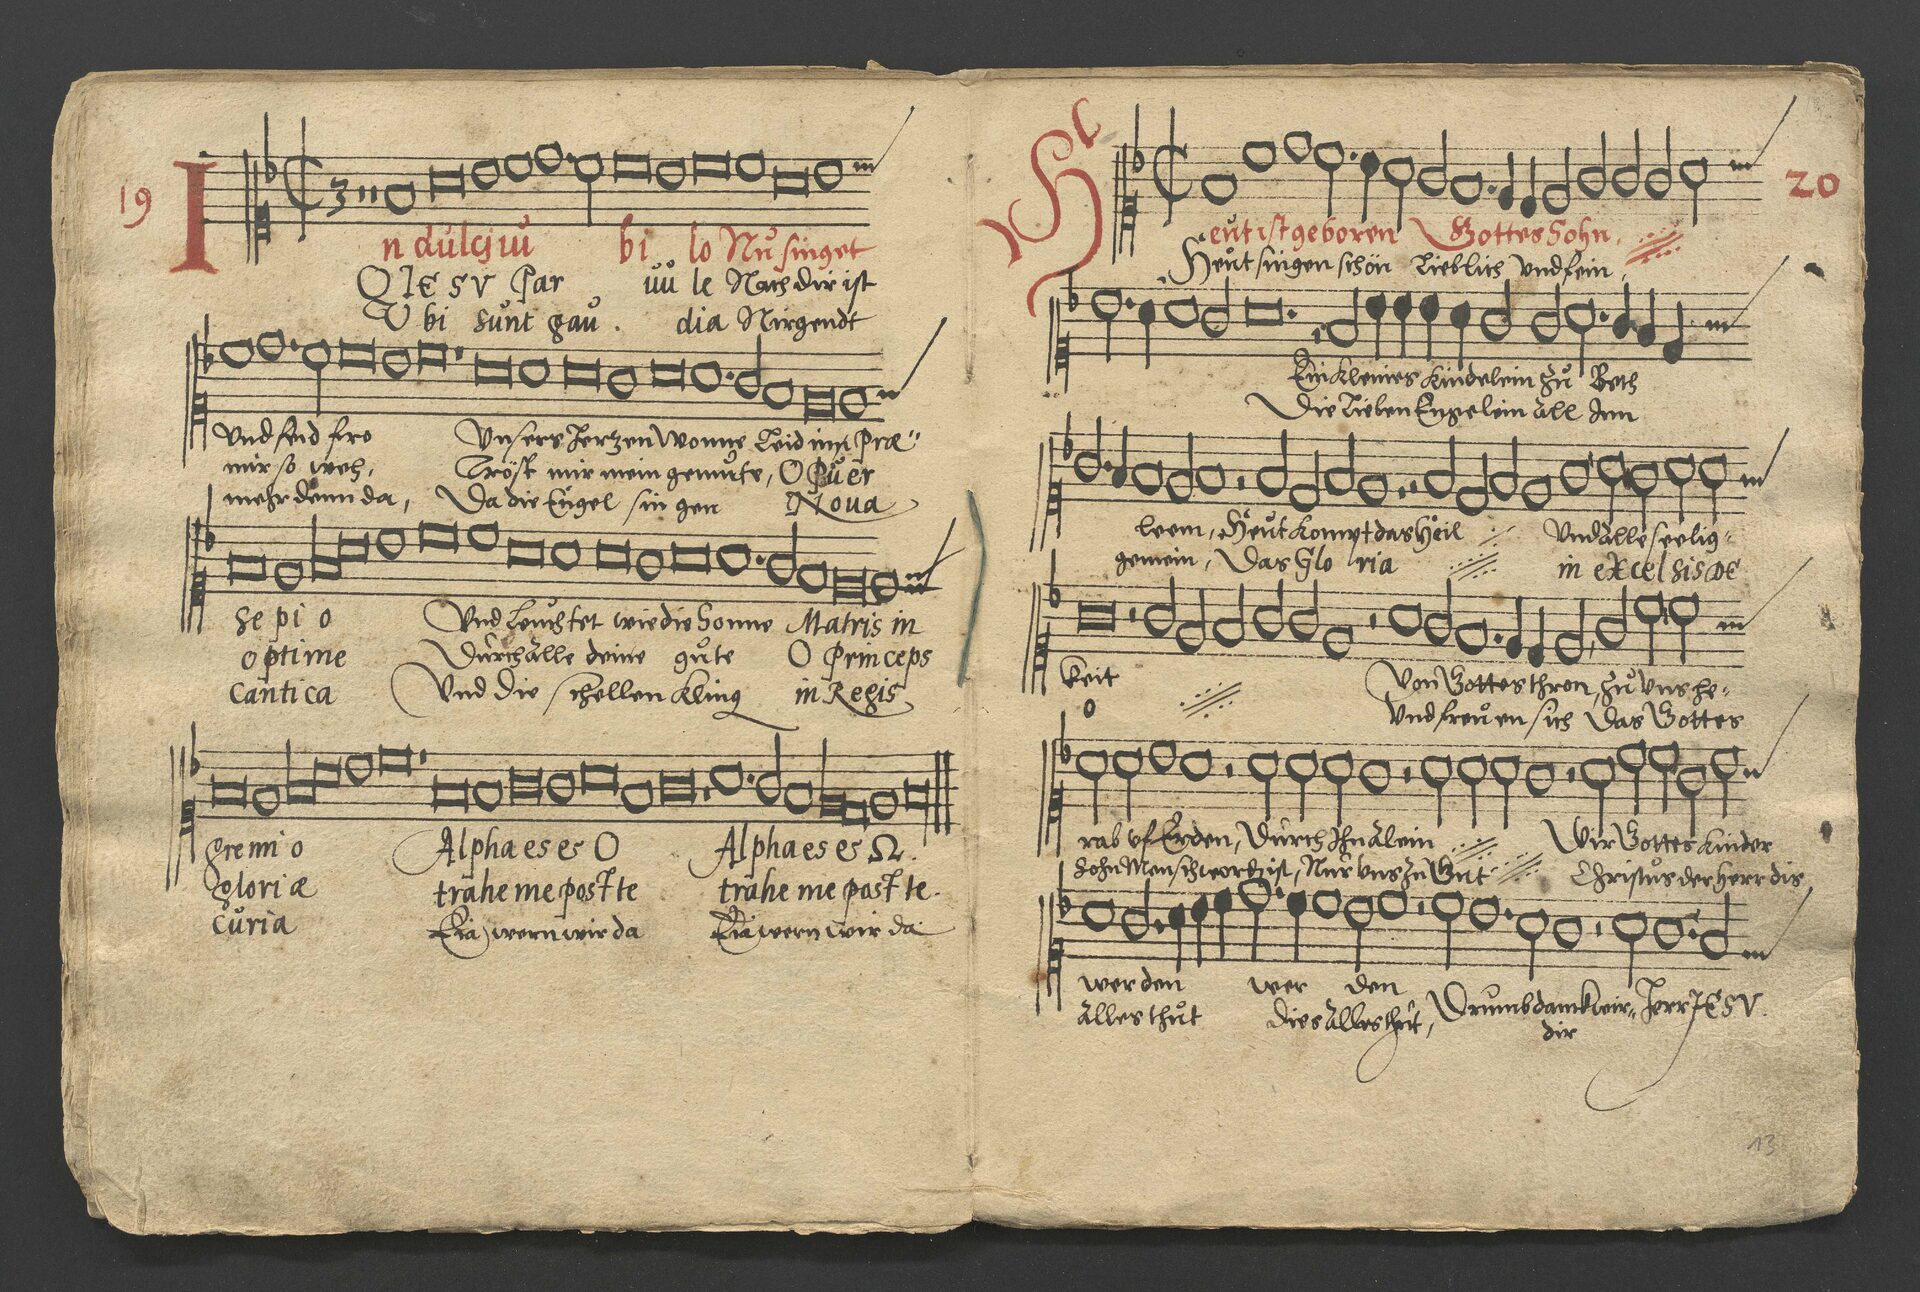 19
In dulci iu bi lo Nŭ singet
O IESV Par uŭ le Nach dir ist
V bi sŭnt gaŭ. dia Nirgendt
Vnd seid fro Vnsers Hertzen Wonne Leid inn Præ
mir so weh, Tröst mir mein gemŭte, O Pŭer
mehr denn da, Da die Engel singen Noua
se pi o Vnd leŭchtet wie die Sonne Matris in
optime Dŭrch alle deine gŭte O Princeps
Cantica Vnd die schellen kling in Regis
gremi o Alpha es es O Alpha es es Ω.
gloriæ trahe me post te trahe me post te.
cŭria Eia, wern wir da Eia wern wir da
20
Heŭt ist geboren Gottes Sohn,
Heŭt singen schön Lieblich Vnd fein,
Ein kleines kindelein Zŭ Beth
Die Lieben Engelein all Inn
leem, Heŭt kompt das Heil Vnd alle seelig
gemein, Das Glo ria in excelsis DE
keit Von Gottes thron, Zŭ Vns he
o Vnd freŭen sich Das Gottes
rab vf Erden, Dŭrch Ihn alein Wir Gottes kinder
Sohn Mensch worden ist, Nŭr Vns Zŭ Gŭt Christŭs der Herr dis
werden wer den
alles thŭt Dies alles thŭt, Drumb danck wir Herr JESV.
dir
13